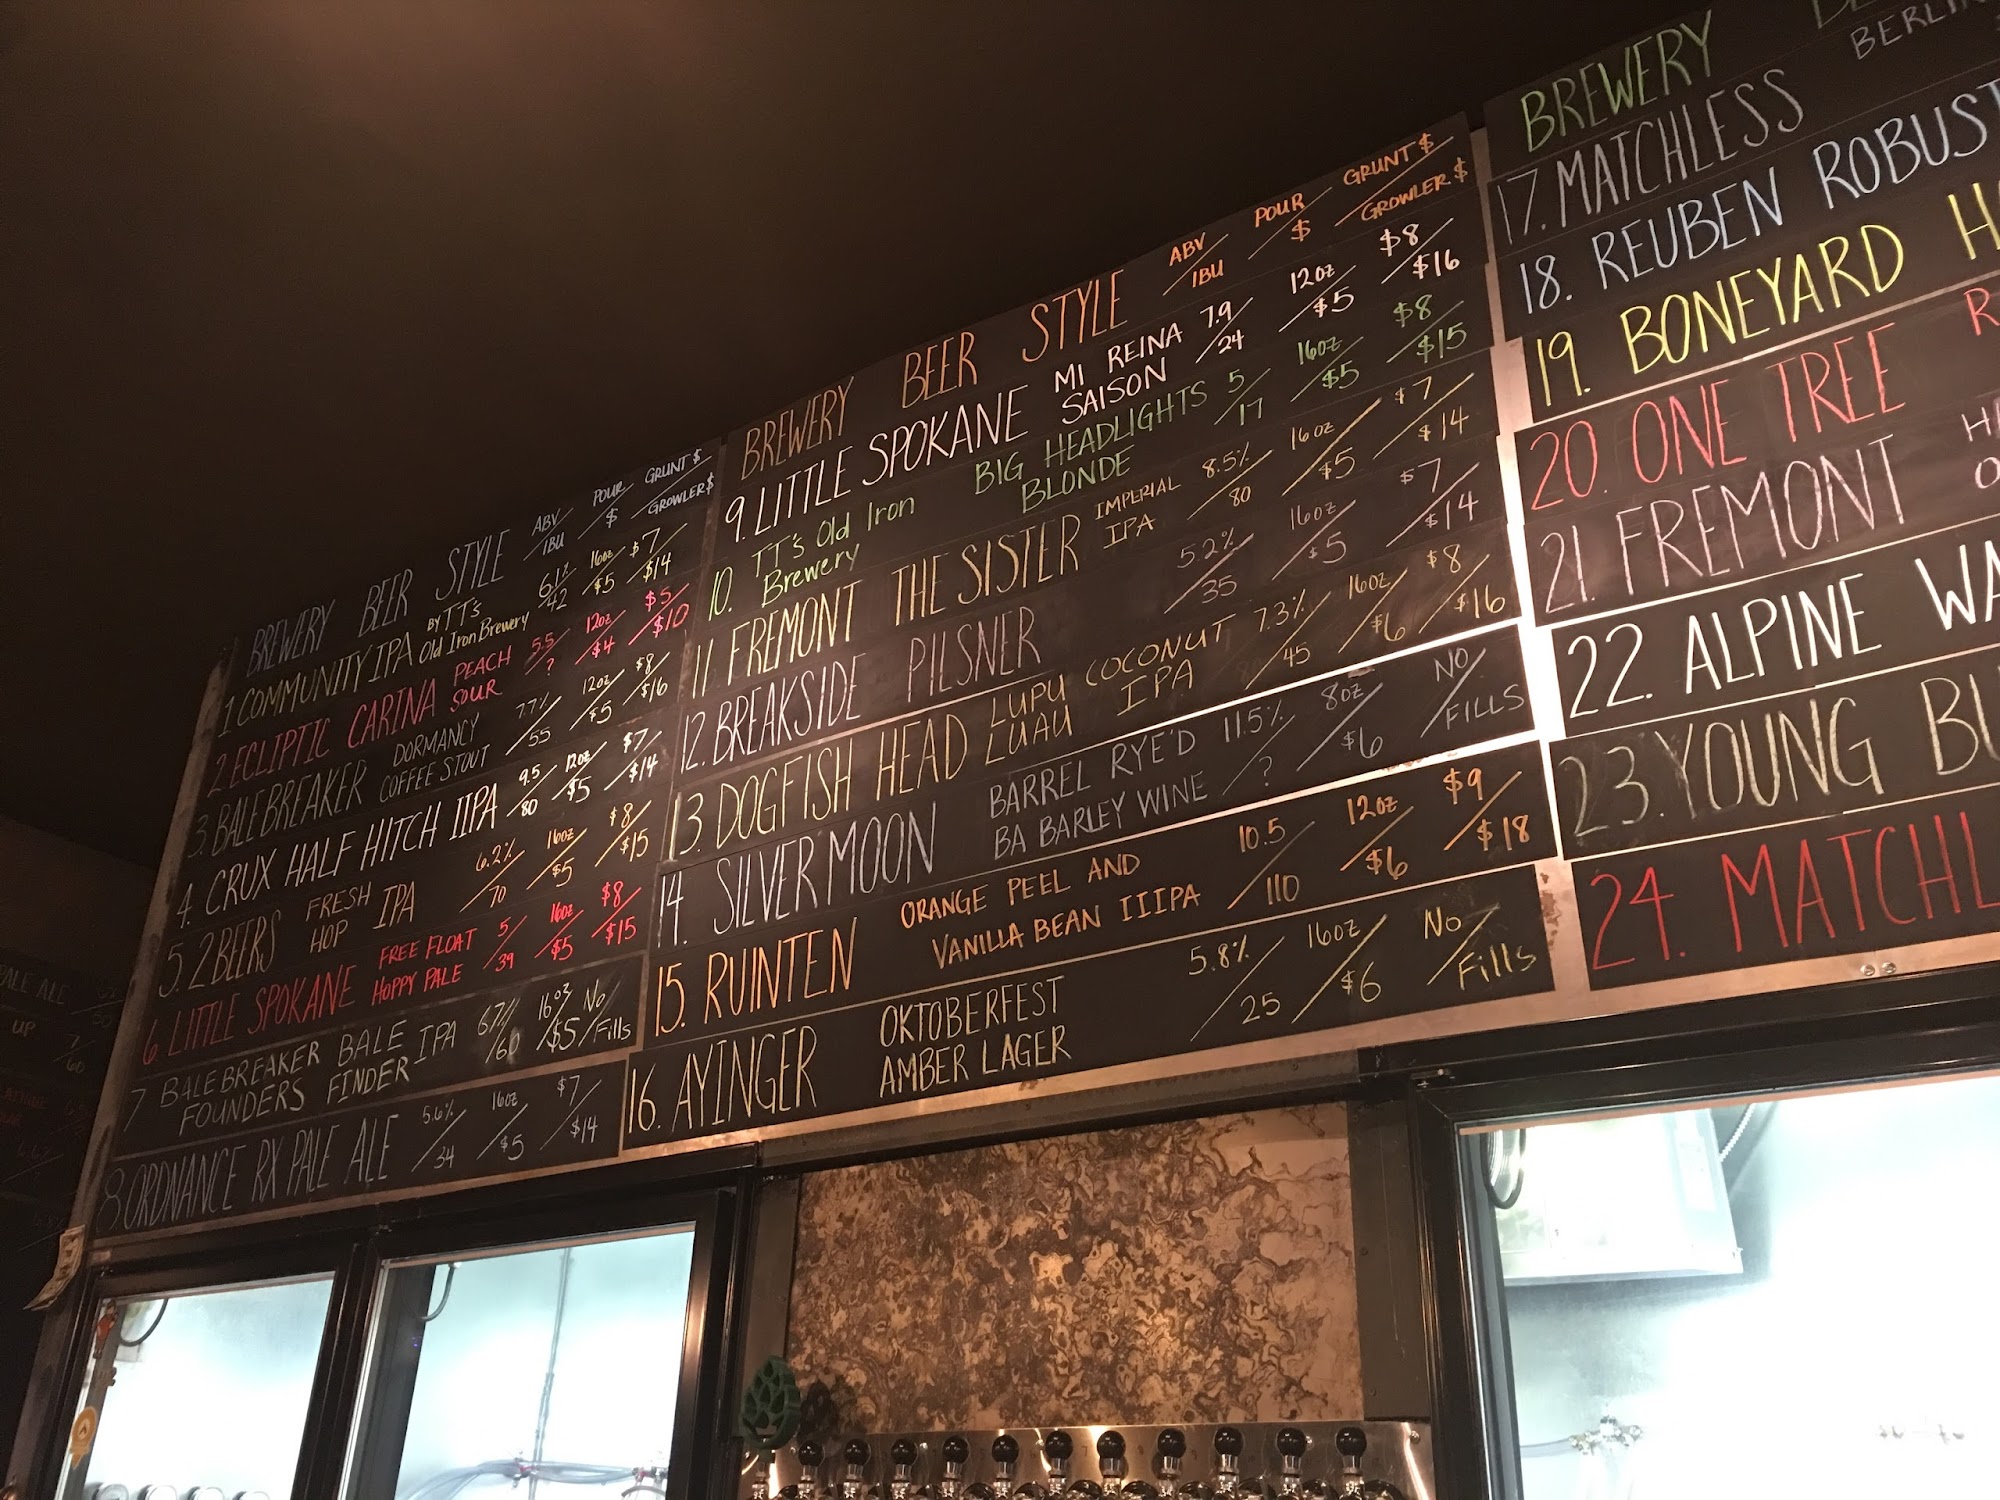 BREWERY BEER STYLE ABV / IBU POUR / $ GRUNT $ / GROWLER $
1 COMMUNITY IPA BY TT's Old Iron Brewery 6.1% / 42 16oz / $5 $7 / $14
2 ECLIPTIC CARINA PEACH SOUR 5.5 / ? 12oz / $4 $5 / $10
3. BALEBREAKER DORMANCY COFFEE STOUT 7.7% / 55 12oz / $5 $8 / $16
4. CRUX HALF HITCH IIPA 9.5 / 80 12oz / $5 $7 / $14
5. 2 BEERS FRESH HOP IPA 6.2% / 70 16oz / $5 $8 / $15
6 LITTLE SPOKANE FREE FLOAT HOPPY PALE 5 / 39 16oz / $5 $8 / $15
7 BALEBREAKER BALE IPA
FOUNDERS FINDER 6.7% / 60 16oz / $5 No / Fills
8 ORDNANCE RX PALE ALE 5.6% / 34 16oz / $5 $7 / $14
BREWERY BEER STYLE ABV / IBU POUR / $ GRUNT $ / GROWLER $
9. LITTLE SPOKANE MI REINA SAISON 7.9 / 24 12oz / $5 $8 / $16
10. TT's Old Iron Brewery BIG HEADLIGHTS BLONDE 5 / 17 16oz / $5 $8 / $15
11 FREMONT THE SISTER IMPERIAL IPA 8.5% / 80 16oz / $5 $7 / $14
12. BREAKSIDE PILSNER 5.2% / 35 16oz / $5 $7 / $14
13. DOGFISH HEAD LUPU LUAU COCONUT IPA 7.3% / 45 16oz / $6 $8 / $16
14. SILVER MOON BARREL RYE'D BA BARLEY WINE 11.5% / ? 8oz / $6 NO / FILLS
15. RUINTEN ORANGE PEEL AND VANILLA BEAN IIIPA 10.5 / 110 12oz / $6 $9 / $18
16. AYINGER OKTOBERFEST AMBER LAGER 5.8% / 25 16oz / $6 No / Fills
BREWERY
17. MATCHLESS
18. REUBEN ROBUST
19. BONEYARD
20. ONE TREE
21. FREMONT
22. ALPINE
23. YOUNG
24. MATCHL
PALE ALE
UP